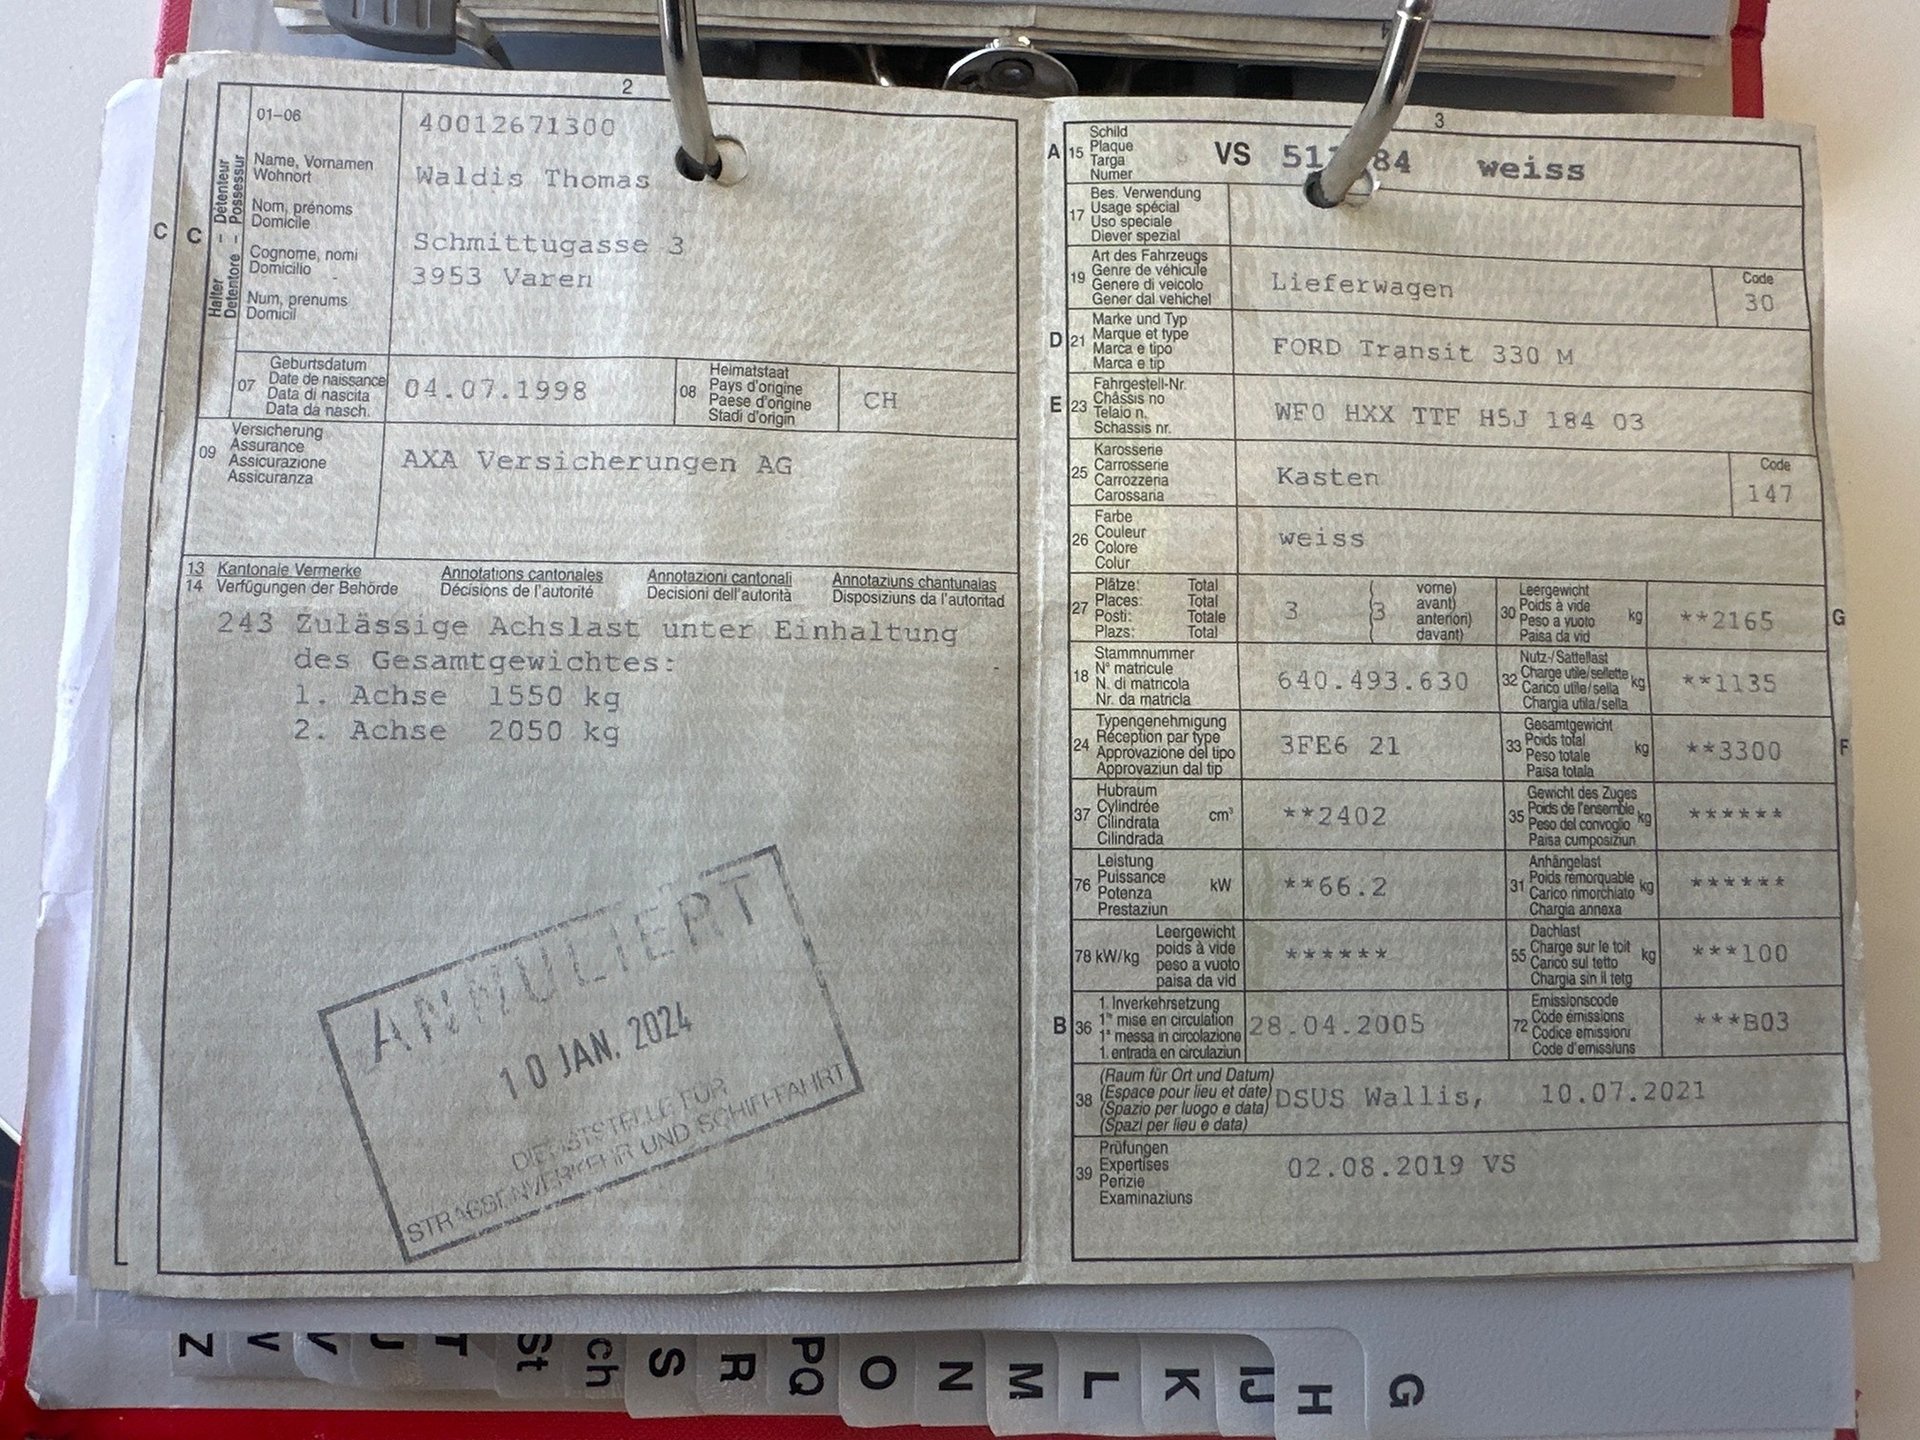 2
01-06
40012671300
C
C
Halter - Détenteur
Detentore - Possessur
Name, Vornamen
Wohnort
Nom, prénoms
Domicile
Cognome, nomi
Domicilio
Num, prenums
Domicil
Waldis Thomas
Schmittugasse 3
3953 Varen
07
Geburtsdatum
Date de naissance
Data di nascita
Data da nasch.
04.07.1998
08
Heimatstaat
Pays d'origine
Paese d'origine
Stadi d'origin
CH
09
Versicherung
Assurance
Assicurazione
Assicuranza
AXA Versicherungen AG
13 Kantonale Vermerke Annotations cantonales Annotazioni cantonali Annotaziuns chantunalas
14 Verfügungen der Behörde Décisions de l'autorité Decisioni dell'autorità Disposiziuns da l'autoritad
243 Zulässige Achslast unter Einhaltung
des Gesamtgewichtes:
1. Achse 1550 kg
2. Achse 2050 kg
ANNULIERT
10 JAN. 2024
DIENSTSTELLE FÜR
STRASSENVERKEHR UND SCHIFFFAHRT
3
A 15
Schild
Plaque
Targa
Numer
VS 51 84 weiss
17
Bes. Verwendung
Usage spécial
Uso speciale
Diever spezial
19
Art des Fahrzeugs
Genre de véhicule
Genere di veicolo
Gener dal vehichel
Lieferwagen
Code
30
D 21
Marke und Typ
Marque et type
Marca e tipo
Marca e tip
FORD Transit 330 M
E 23
Fahrgestell-Nr.
Châssis no
Telaio n.
Schassis nr.
WF0 HXX TTF H5J 184 03
25
Karosserie
Carrosserie
Carrozzeria
Carossaria
Kasten
Code
147
26
Farbe
Couleur
Colore
Colur
weiss
27
Plätze: Total
Places: Total
Posti: Totale
Plazs: Total
3
( 3
vorne)
avant)
anteriori)
davant)
30
Leergewicht
Poids à vide
Peso a vuoto
Paisa da vid
kg
**2165
G
18
Stammnummer
N° matricule
N. di matricola
Nr. da matricla
640.493.630
32
Nutz-/Sattellast
Charge utile/sellette
Carico utile/sella
Chargia utila/sella
kg
**1135
24
Typengenehmigung
Réception par type
Approvazione del tipo
Approvaziun dal tip
3FE6 21
33
Gesamtgewicht
Poids total
Peso totale
Paisa totala
kg
**3300
F
37
Hubraum
Cylindrée
Cilindrata
Cilindrada
cm³
**2402
35
Gewicht des Zuges
Poids de l'ensemble
Peso del convoglio
Paisa cumposiziun
kg
******
76
Leistung
Puissance
Potenza
Prestaziun
kW
**66.2
31
Anhängelast
Poids remorquable
Carico rimorchiato
Chargia annexa
kg
******
78 kW/kg
Leergewicht
poids à vide
peso a vuoto
paisa da vid
******
55
Dachlast
Charge sur le toit
Carico sul tetto
Chargia sin il tetg
kg
***100
B 36
1. Inverkehrsetzung
1re mise en circulation
1a messa in circolazione
1. entrada en circulaziun
28.04.2005
72
Emissionscode
Code émissions
Codice emissioni
Code d'emissiuns
***B03
38
(Raum für Ort und Datum)
(Espace pour lieu et date)
(Spazio per luogo e data)
(Spazi per lieu e data)
DSUS Wallis, 10.07.2021
39
Prüfungen
Expertises
Perizie
Examinaziuns
02.08.2019 VS
Z
T
St
S
R
PQ
O
N
M
L
K
IJ
H
G